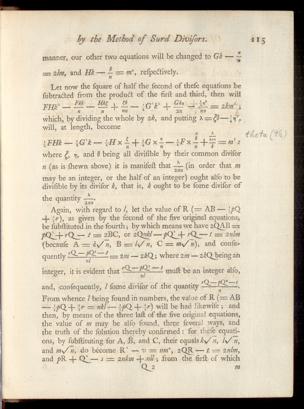 by the Method of Surd Divisors. 115
manner, our other two equations will be changed to Gk —
= 2lm, and Hk — = m², respectively.
Let now the square of half the second of these equations be
subtracted from the product of the first and third, then will
which, by dividing the whole by 2k, and putting
will, at length, become
theta (θ/k)
where ξ, η, and θ being all divisible by their common divisor
n (as is shewn above) it is manifest that (in order that m
may be an integer, or the half of an integer) ought also to be
divisible by its divisor k, that is, k ought to be some divisor of
the quantity
Again, with regard to l, let the value of R (= AB — ½pQ
+ ½r), as given by the second of the five original equations,
be substituted in the fourth; by which means we have 2QAB —
pQ² + rQ — t = 2BC, or 2Qnkl — pQ² + rQ — t = 2nlm
(because A = k√n, B = l√n, C = m√n), and conse-
quently = 2m — 2kQ; where 2m — 2kQ being an
integer, it is evident that must be an integer also,
and, consequently, l some divisor of the quantity
From whence l being found in numbers, the value of R (= AB
— ½pQ + ½r = nkl — ½pQ + ½r) will be had likewise; and
then, by means of the three last of the five original equations,
the value of m may be also found, three several ways, and
the truth of the solution thereby confirmed: for these equati-
ons, by substituting for A, B, and C, their equals k√n, l√n,
and m√n, do become R² — v = nm², 2QR — t = 2nlm,
and pR + Q² — s = 2nkm + nll; from the first of which
Q 2 m